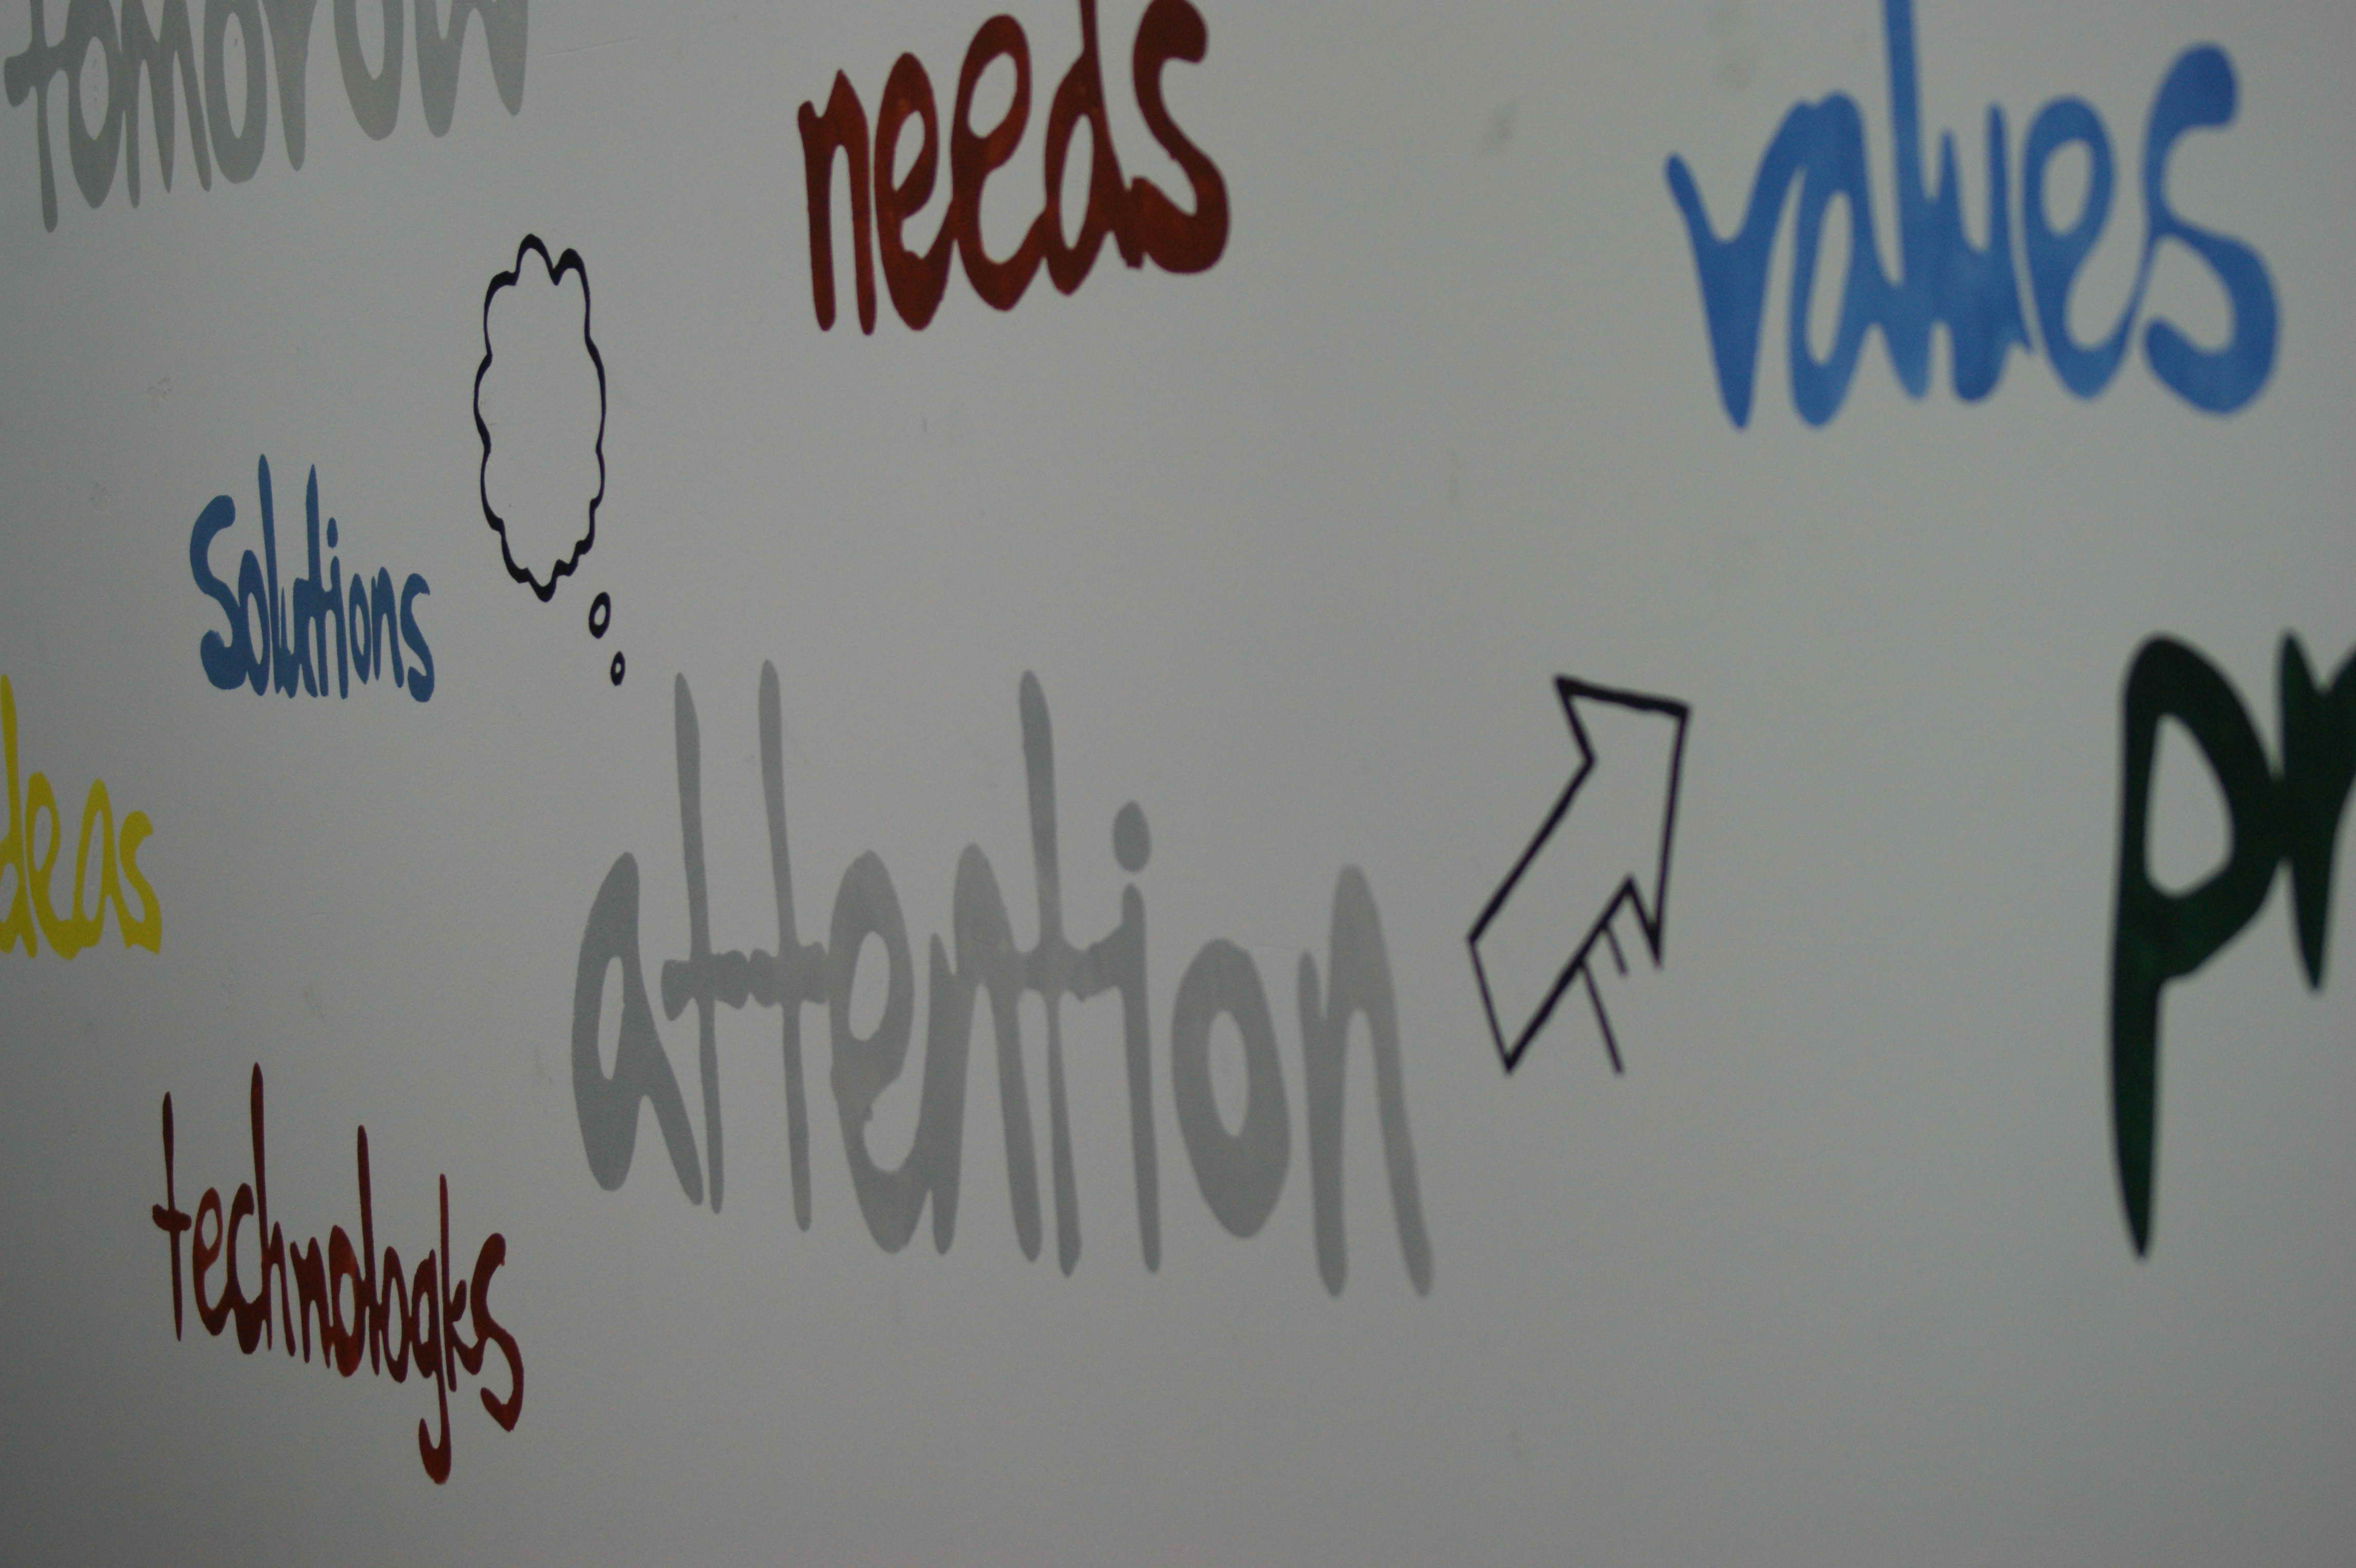 tomorow
needs
values
Solutions
deas
attention
pr
technologies